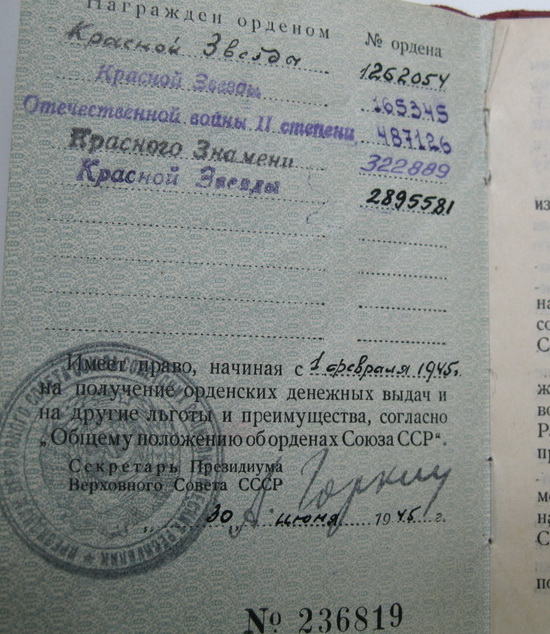 Награжден орденом № ордена
Красной Звезды 1262054
Красной Звезды 165345
Отечественной войны II степени 487126
Красного Знамени 322889
Красной Звезды 2895581
Имеет право, начиная с 1 февраля 1945г.
на получение орденских денежных выдач и
на другие льготы и преимущества, согласно
„Общему положению об орденах Союза ССР“.
Секретарь Президиума
Верховного Совета СССР
А. Горкин
„30„ июня 1945 г.
№ 236819